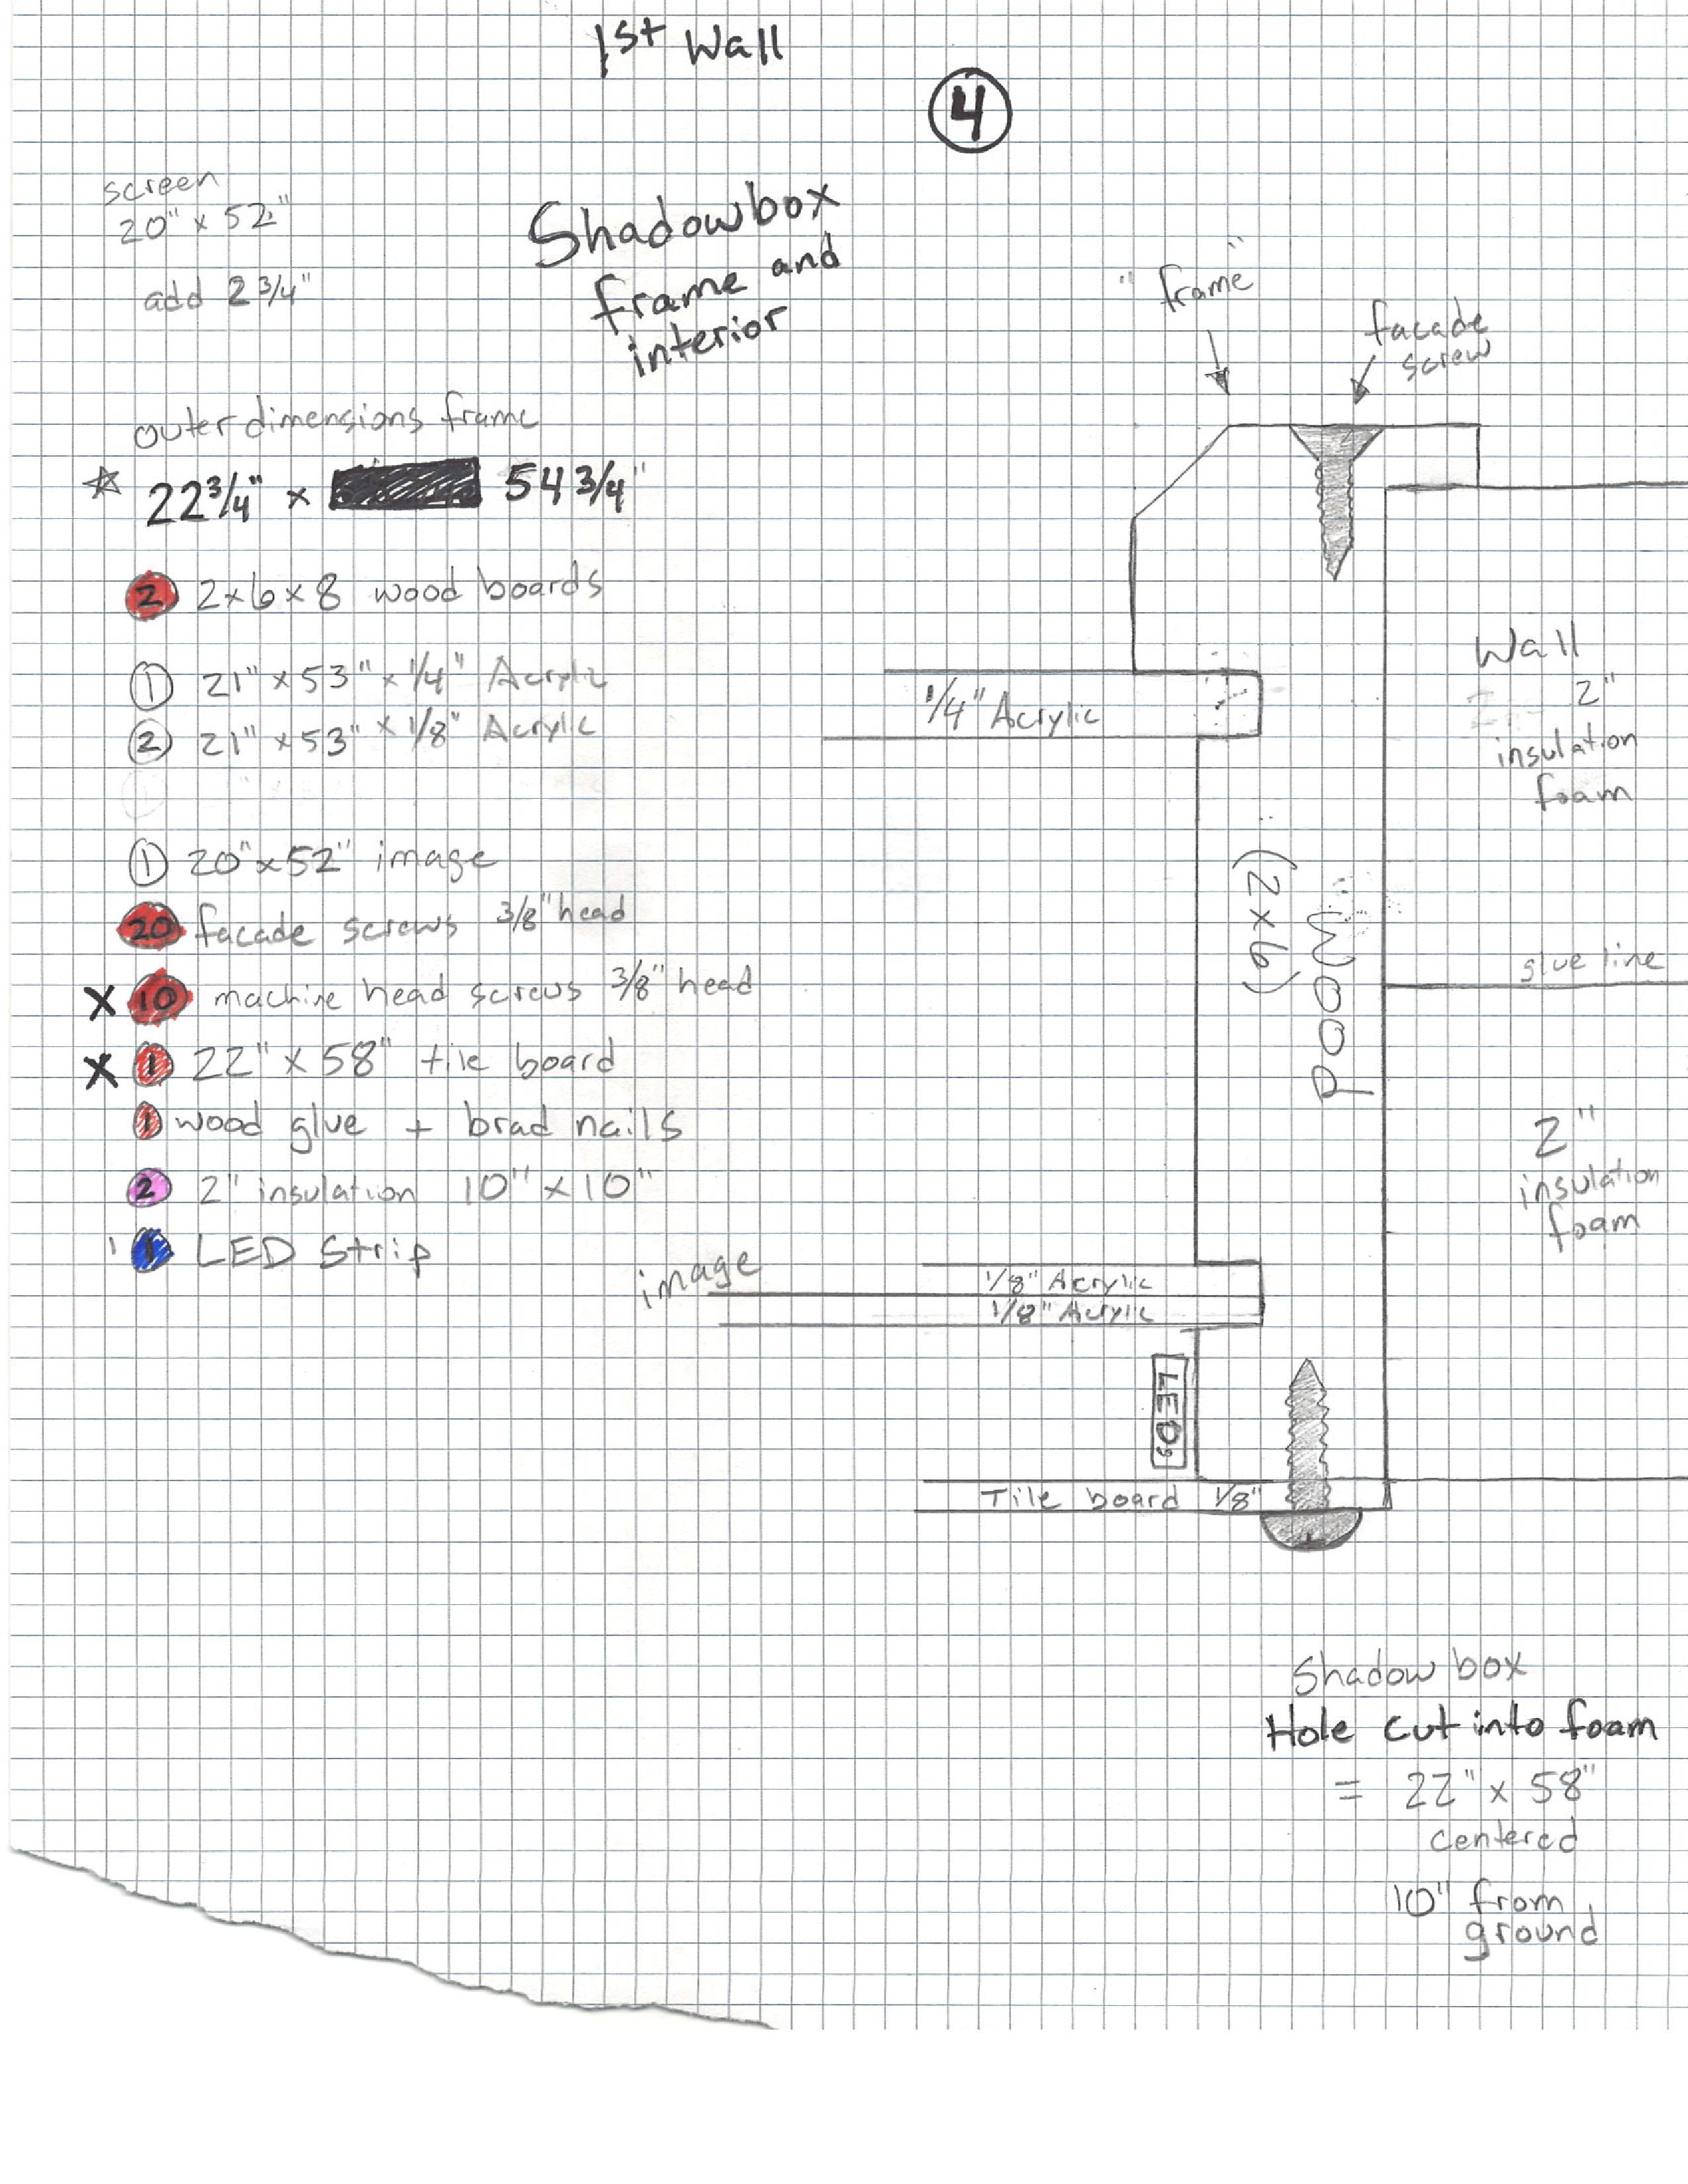 1st Wall
4
screen
20" x 52"
add 2 3/4"
Shadowbox
frame and
interior
"frame"
facade
screw
outer dimensions frame
☆ 22 3/4" x 54 3/4"
2 2x6x8 wood boards
1 21" x 53" x 1/4" Acrylic
2 21" x 53" x 1/8" Acrylic
1 20" x 52" image
20 facade screws 3/8" head
X 10 machine head screws 3/8" head
X 1 22" x 58" tile board
1 wood glue + brad nails
2 2" insulation 10" x 10"
1 1 LED Strip
1/4" Acrylic
Wall
2"
insulation
foam
Wood
(2x6)
glue line
2"
insulation
foam
image
1/8" Acrylic
1/8" Acrylic
LEDs
Tile board 1/8"
Shadow box
Hole cut into foam
= 22" x 58"
centered
10" from
ground